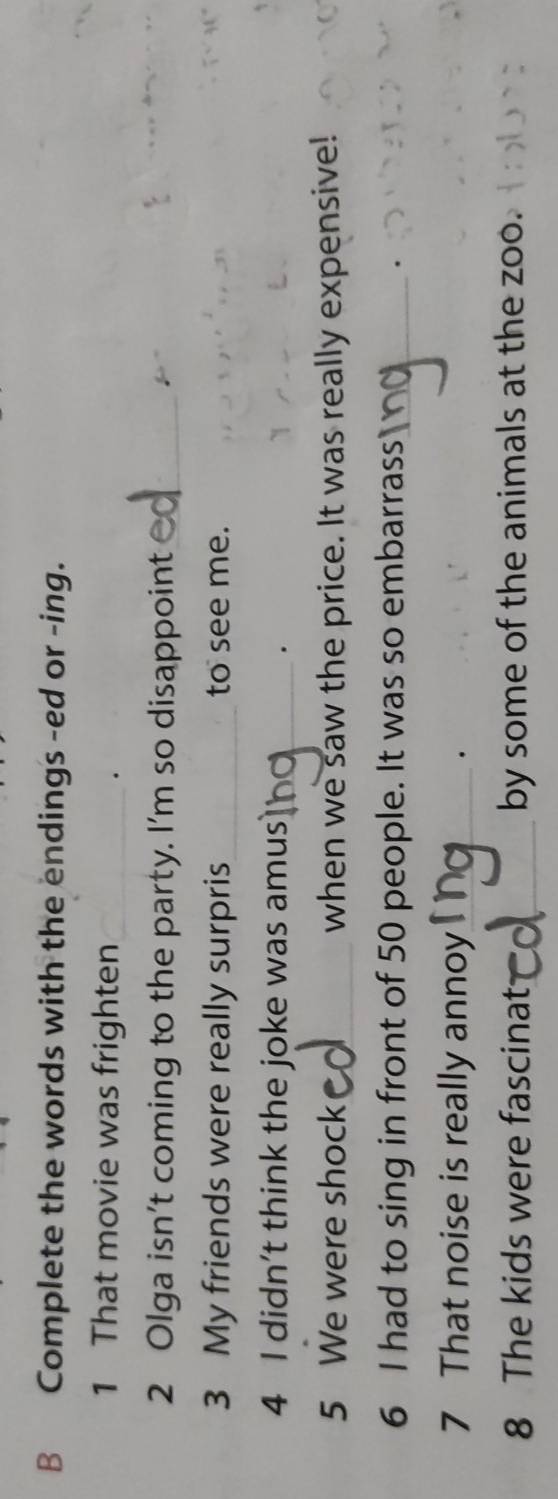 B Complete the words with the endings -ed or -ing.
1 That movie was frighten______.
2 Olga isn't coming to the party. I'm so disappointed______.
3 My friends were really surpris______ to see me.
4 I didn't think the joke was amusing______.
5 We were shocked______ when we saw the price. It was really expensive!
6 I had to sing in front of 50 people. It was so embarrassing______.
7 That noise is really annoying______.
8 The kids were fascinated______ by some of the animals at the zoo.